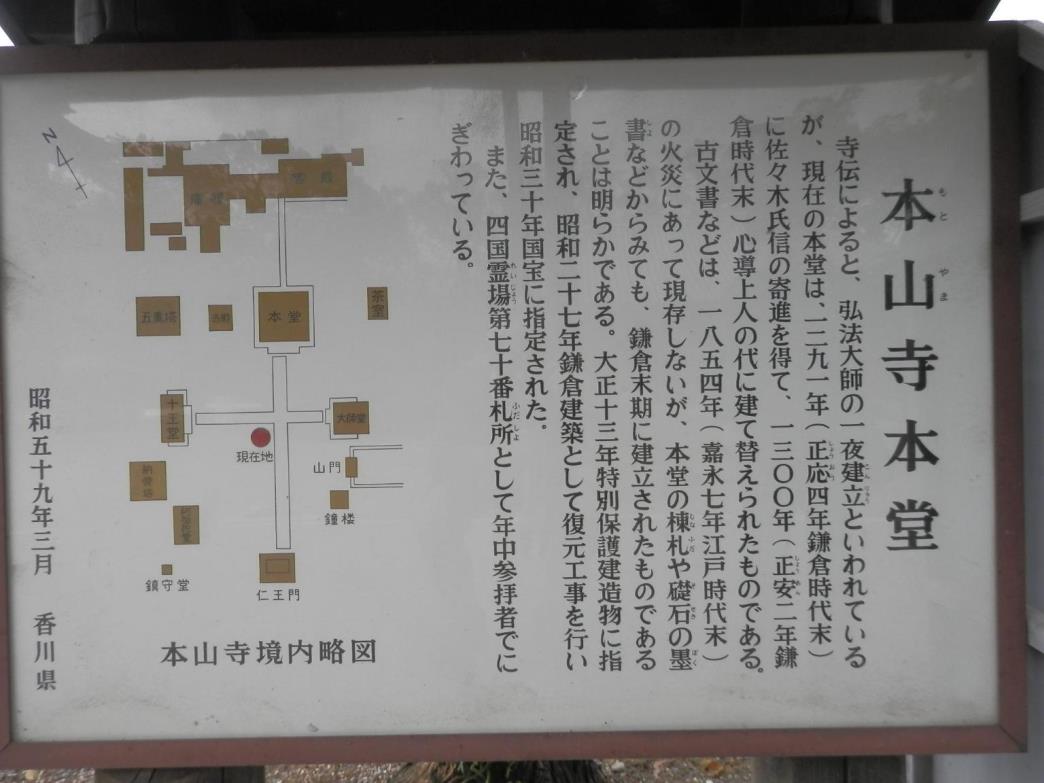 本山寺本堂
もと やま
寺伝によると、弘法大師の一夜建立といわれている
が、現在の本堂は、一二九一年（正応四年鎌倉時代末）
に佐々木氏信の寄進を得て、一三〇〇年（正安二年鎌
倉時代末）心導上人の代に建て替えられたものである。
古文書などは、一八五四年（嘉永七年江戸時代末）
の火災にあって現存しないが、本堂の棟札や礎石の墨
書などからみても、鎌倉末期に建立されたものである
ことは明らかである。大正十三年特別保護建造物に指
定され、昭和二十七年鎌倉建築として復元工事を行い
昭和三十年国宝に指定された。
また、四国霊場第七十番札所として年中参拝者でに
ぎわっている。
N
客殿
庫裡
五重塔
本堂
茶室
十王堂
大師堂
現在地
山門
納骨塔
鐘楼
鎮守堂
仁王門
本山寺境内略図
昭和五十九年三月 香川県